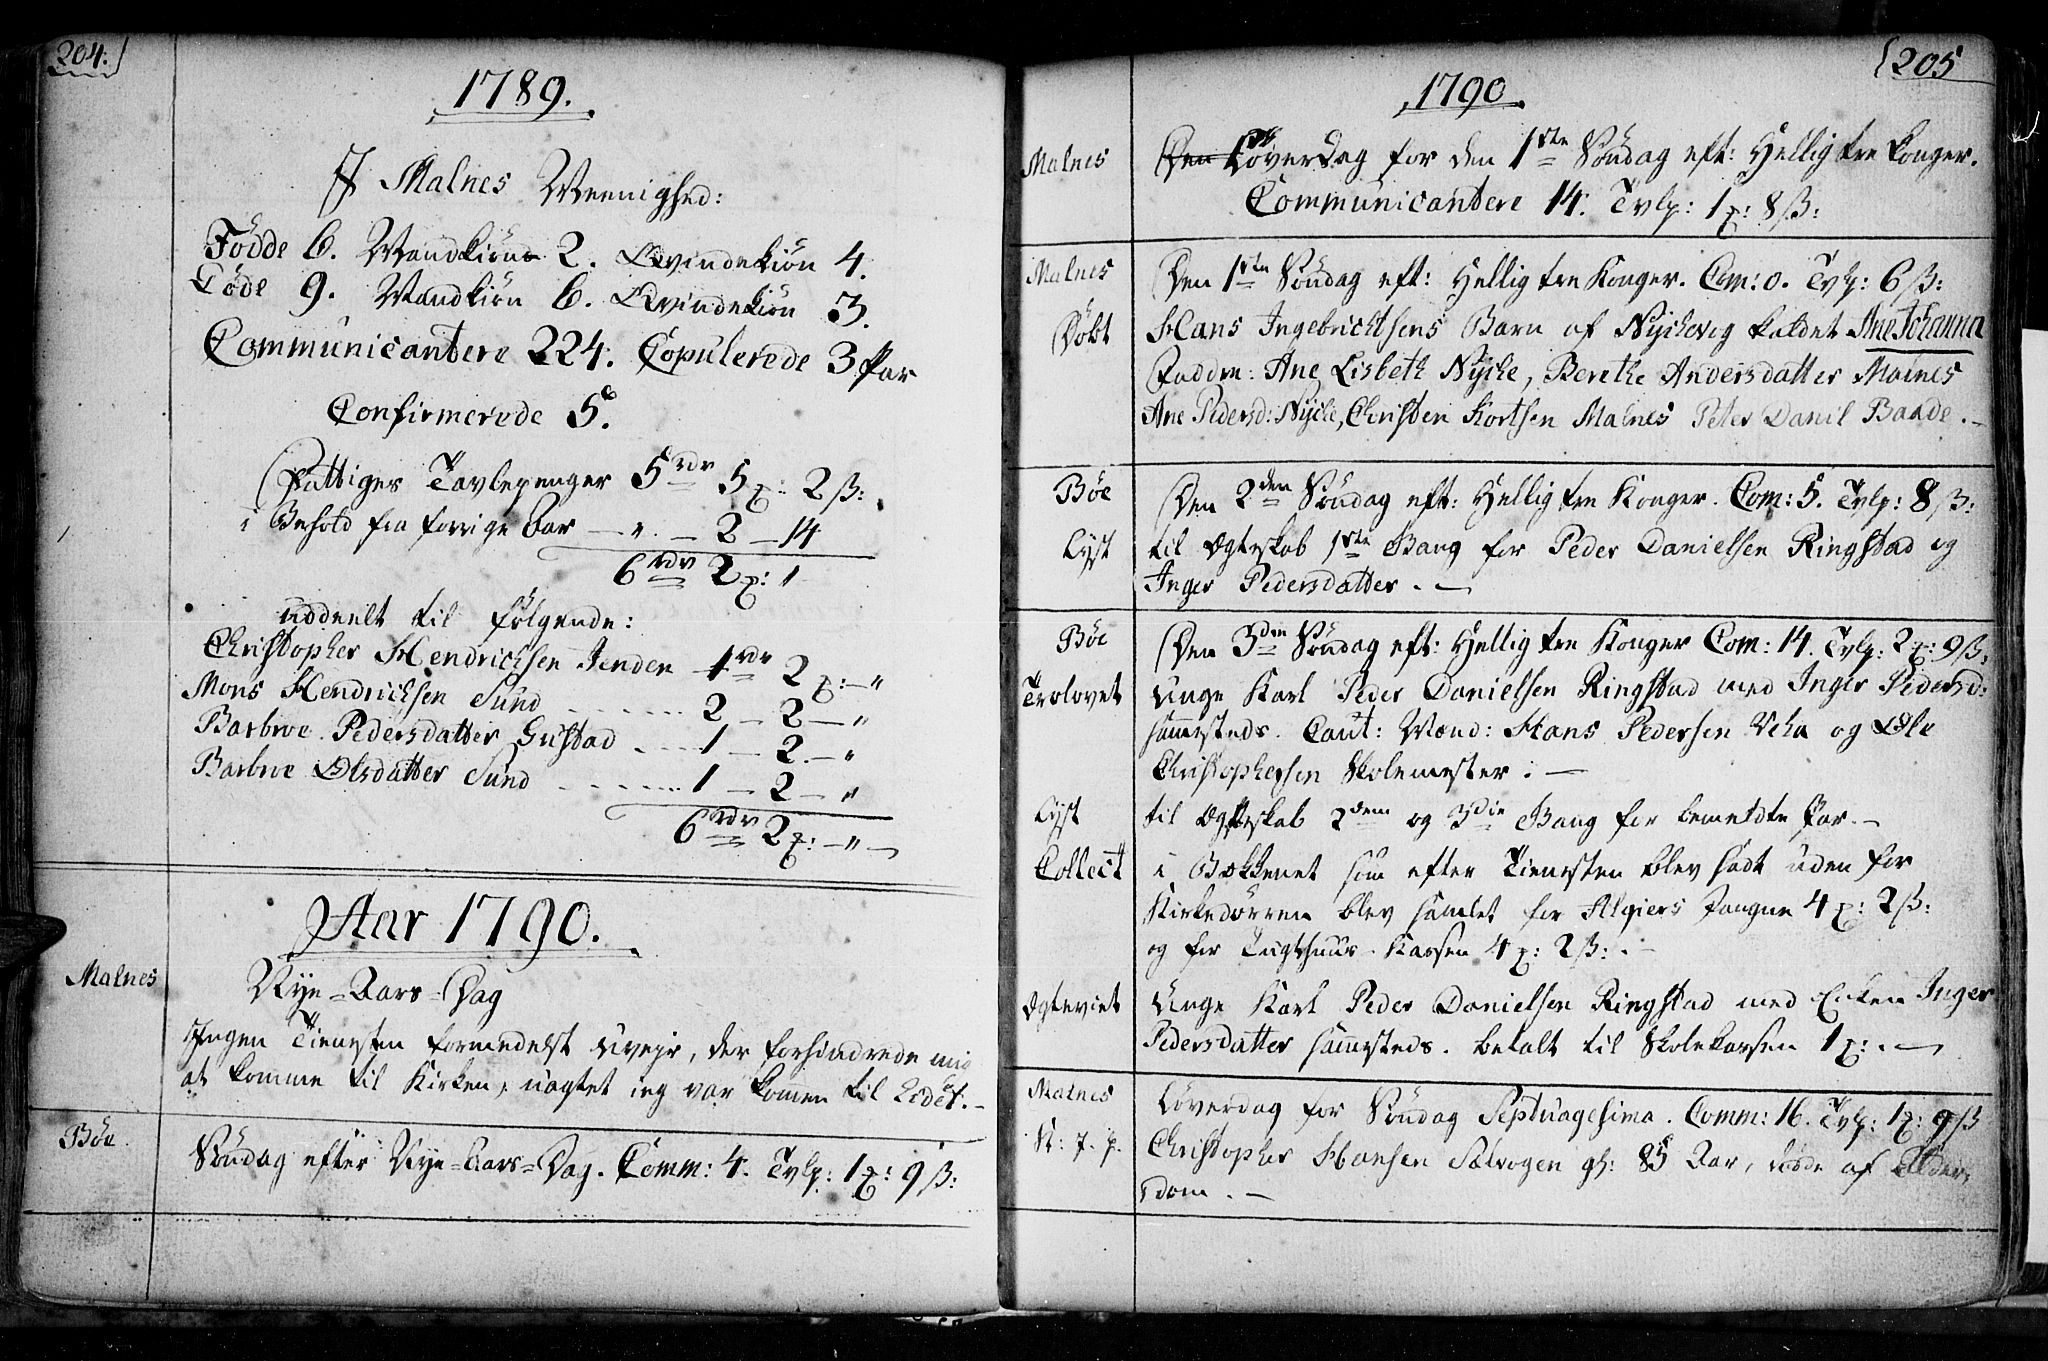 204.
1789.
I Malnes Meenighed:
Födde 6. Mandkiön 2. Qvindekiön 4.
Döde 9. Mandkiön 6. Qvindekiön 3.
Communicantere 224. Copulerede 3 Par
Confirmerede 5.
Fattiges Tavlepenger 5 rdr 5 ß: 2 ß:
i Behold fra forrige Aar — " — 2 — 14
6 rdr 2 : 1
uddeelt til følgende:
Christopher Hendrichsen Jenden 1 rdr 2 : — "
Mons Hendrichsen Sund ....... 2 — 2 — "
Barbroe Pedersdatter Gustad ..... 1 — 2. — "
Barbroe Olsdatter Sund ....... 1 — 2 — "
6 rdr 2 : — " —
Aar 1790.
Malnes
Nye-Aars-Dag
Ingen Tienesten formedelst Uvejr, der forhindrede mig
at komme til Kirken, uagtet ieg var kommen til Eidet. —
Böe.
Söndag efter Nye-Aars-Dag. Comm: 4. Tvlp: 1 : 9 ß:
205
1790.
Malnes
Löverdag for den 1ste Söndag eft: Hellig tre konger.
Communicantere 14. Tvlp: 1 : 8 ß:
Malnes
Den 1ste Söndag eft: Hellig tre Konger. Com: 0. Tvlp: 6 ß:
Döbt
Hans Ingebrichtsens Barn af Nyckevig kaldet Ane Johanna
Faddre: Ane Lisbeth Nycke, Berethe Andersdatter Malnes
Ane Pedersd: Nycke, Christen Kortsen Malnes Peter Danil Baade. —
Böe
Den 2den Söndag eft: Hellig tre Konger. Com: 5. Tvlp: 8 ß:
Lyst
til Ægteskab 1ste Gang for Peder Danielsen Ringstad og
Inger Pedersdatter. —
Böe
Den 3die Söndag eft: Hellig tre Konger Com: 14. Tvlp: 2 : 9 ß:
Trolovet
Unge Karl Peder Danielsen Ringstad med Inger Pedersd:
sammesteds. Caut: Mænd: Hans Pedersen Veha og Ole
Christophersen Skolemester. —
Lyst
til Ægteskab 2den og 3die Gang for bemeldte Par. —
Collect
i Bækkenet som efter Tienesten blev sadt uden for
Kirkedörren blev samlet for Algiers Fangne 4 : 2 ß:
og for Tugthuus-Kassen 4 : 2 ß: . —
Ægteviet
Unge Karl Peder Danielsen Ringstad med Enken Inger
Pedersdatter sammesteds. betalt til Skolekassen 1 : . —
Malnes
Löverdag for Söndag Septuagesima. Comm: 16. Tvlp: 1 : 9 ß
Christopher Hansen Sælvogen gl: 85 Aar, döde af Alder,
dom. —